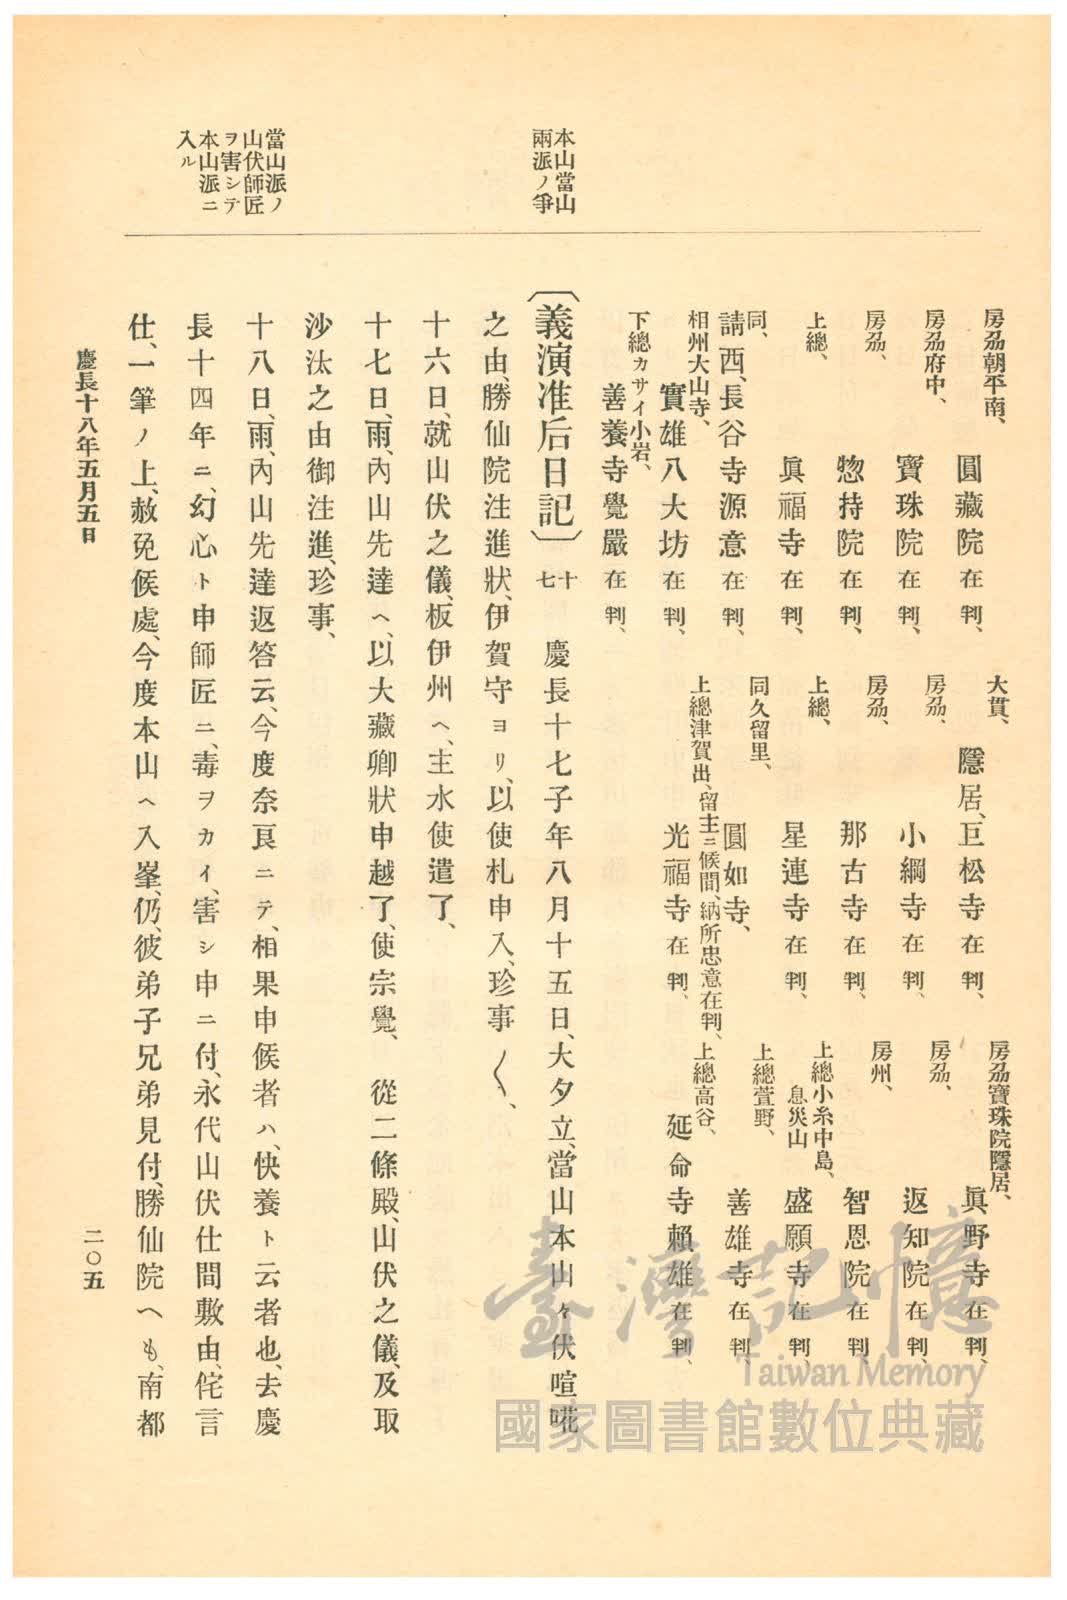 本山當山
兩派ノ爭
當山派ノ
山伏師匠
ヲ害シテ
本山派ニ
入ル
房刕朝平南、圓藏院在判、 大貫、隱居、巨松寺在判、 房刕寶珠院隱居、眞野寺在判、
房刕府中、寶珠院在判、 房刕、小綱寺在判、 房刕、返知院在判、
房刕、惣持院在判、 房刕、那古寺在判、 房州、智恩院在判、
上總、眞福寺在判、 上總、星連寺在判、 上總小糸中島、息災山盛願寺在判、
同、請西、長谷寺源意在判、 同久留里、圓如寺、 上總萱野、善雄寺在判、
相州大山寺、實雄八大坊在判、 上總津賀出、留主ニ候間、納所忠意在判、光福寺在判、 上總高谷、延命寺賴雄在判、
下總カサイ小岩、善養寺覺嚴在判、
〔義演准后日記〕十七 慶長十七子年八月十五日、大夕立、當山本山々伏喧嘩
之由、勝仙院注進狀、伊賀守ヨリ、以使札申入、珍事〱、
十六日、就山伏之儀、板伊州ヘ、主水使遣了、
十七日、雨、內山先達ヘ、以大藏卿狀申越了、使宗覺、 從二條殿、山伏之儀、及取
沙汰之由御注進、珍事、
十八日、雨、內山先達返答云、今度奈良ニテ、相果申候者ハ、快養ト云者也、去慶
長十四年ニ、幻心ト申師匠ニ、毒ヲカイ、害シ申ニ付、永代山伏仕間敷由、侘言
仕、一筆ノ上、赦免候處、今度本山ヘ入峯、仍彼弟子兄弟見付、勝仙院ヘも、南都
慶長十八年五月五日
二〇五
臺灣記憶
Taiwan Memory
國家圖書館數位典藏